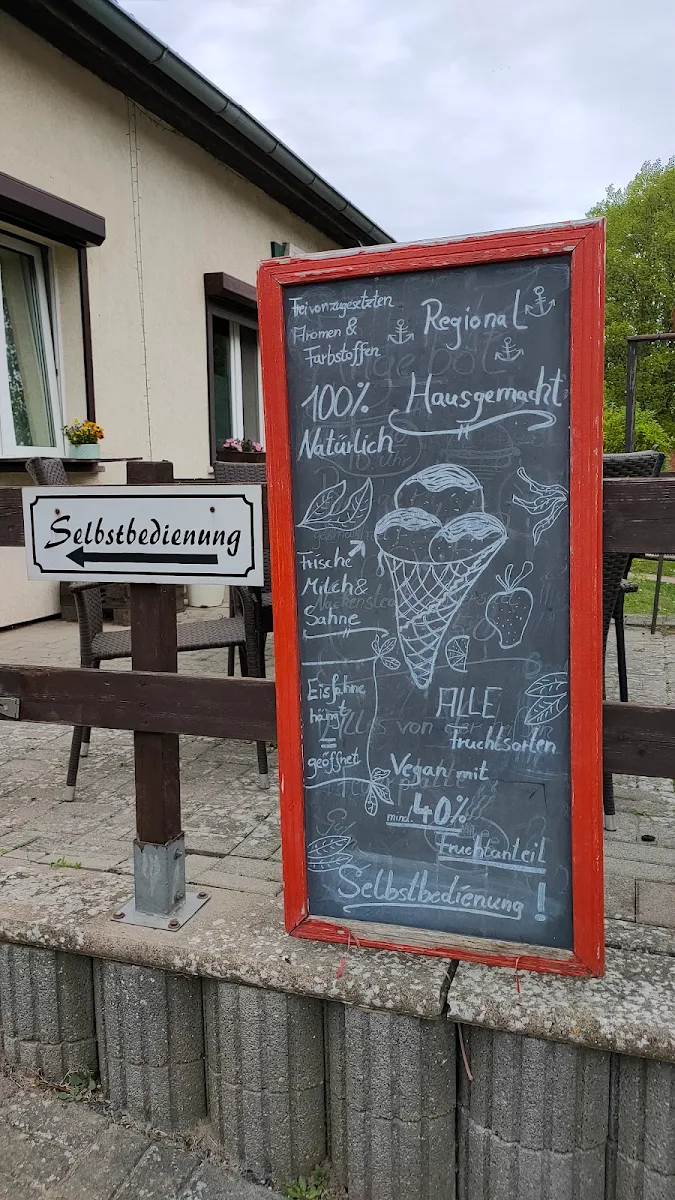 Frei von zugesetzten
Aromen &
Farbstoffen
Regional
100%
Natürlich
Hausgemacht
Frische
Milch &
Sahne
Eisfahne
hängt
=
geöffnet
ALLE
Fruchtsorten
Vegan mit
mind. 40%
Fruchtanteil
Selbstbedienung !
Selbstbedienung